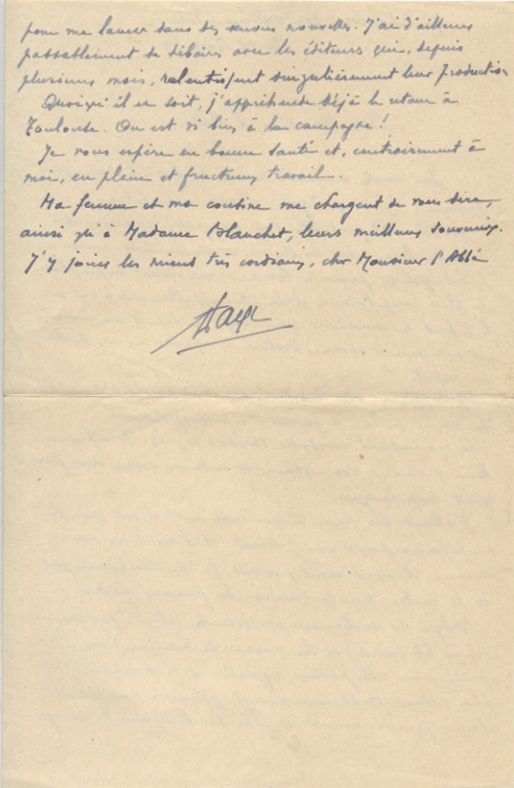 pour me lancer dans des œuvres nouvelles. J'ai d'ailleurs
passablement de déboires avec les éditeurs qui, depuis
plusieurs mois, ralentissent singulièrement leur production
Quoiqu'il en soit, j'appréhende déjà le retour à
Toulouse. On est si bien à la campagne !
Je vous espère en bonne santé et, contrairement à
moi, en plein et fructueux travail.
Ma femme et ma cousine me chargent de vous dire,
ainsi qu'à Madame Blanchet, leurs meilleurs souvenirs.
J'y joins les miens très cordiaux, cher Monsieur l'Abbé